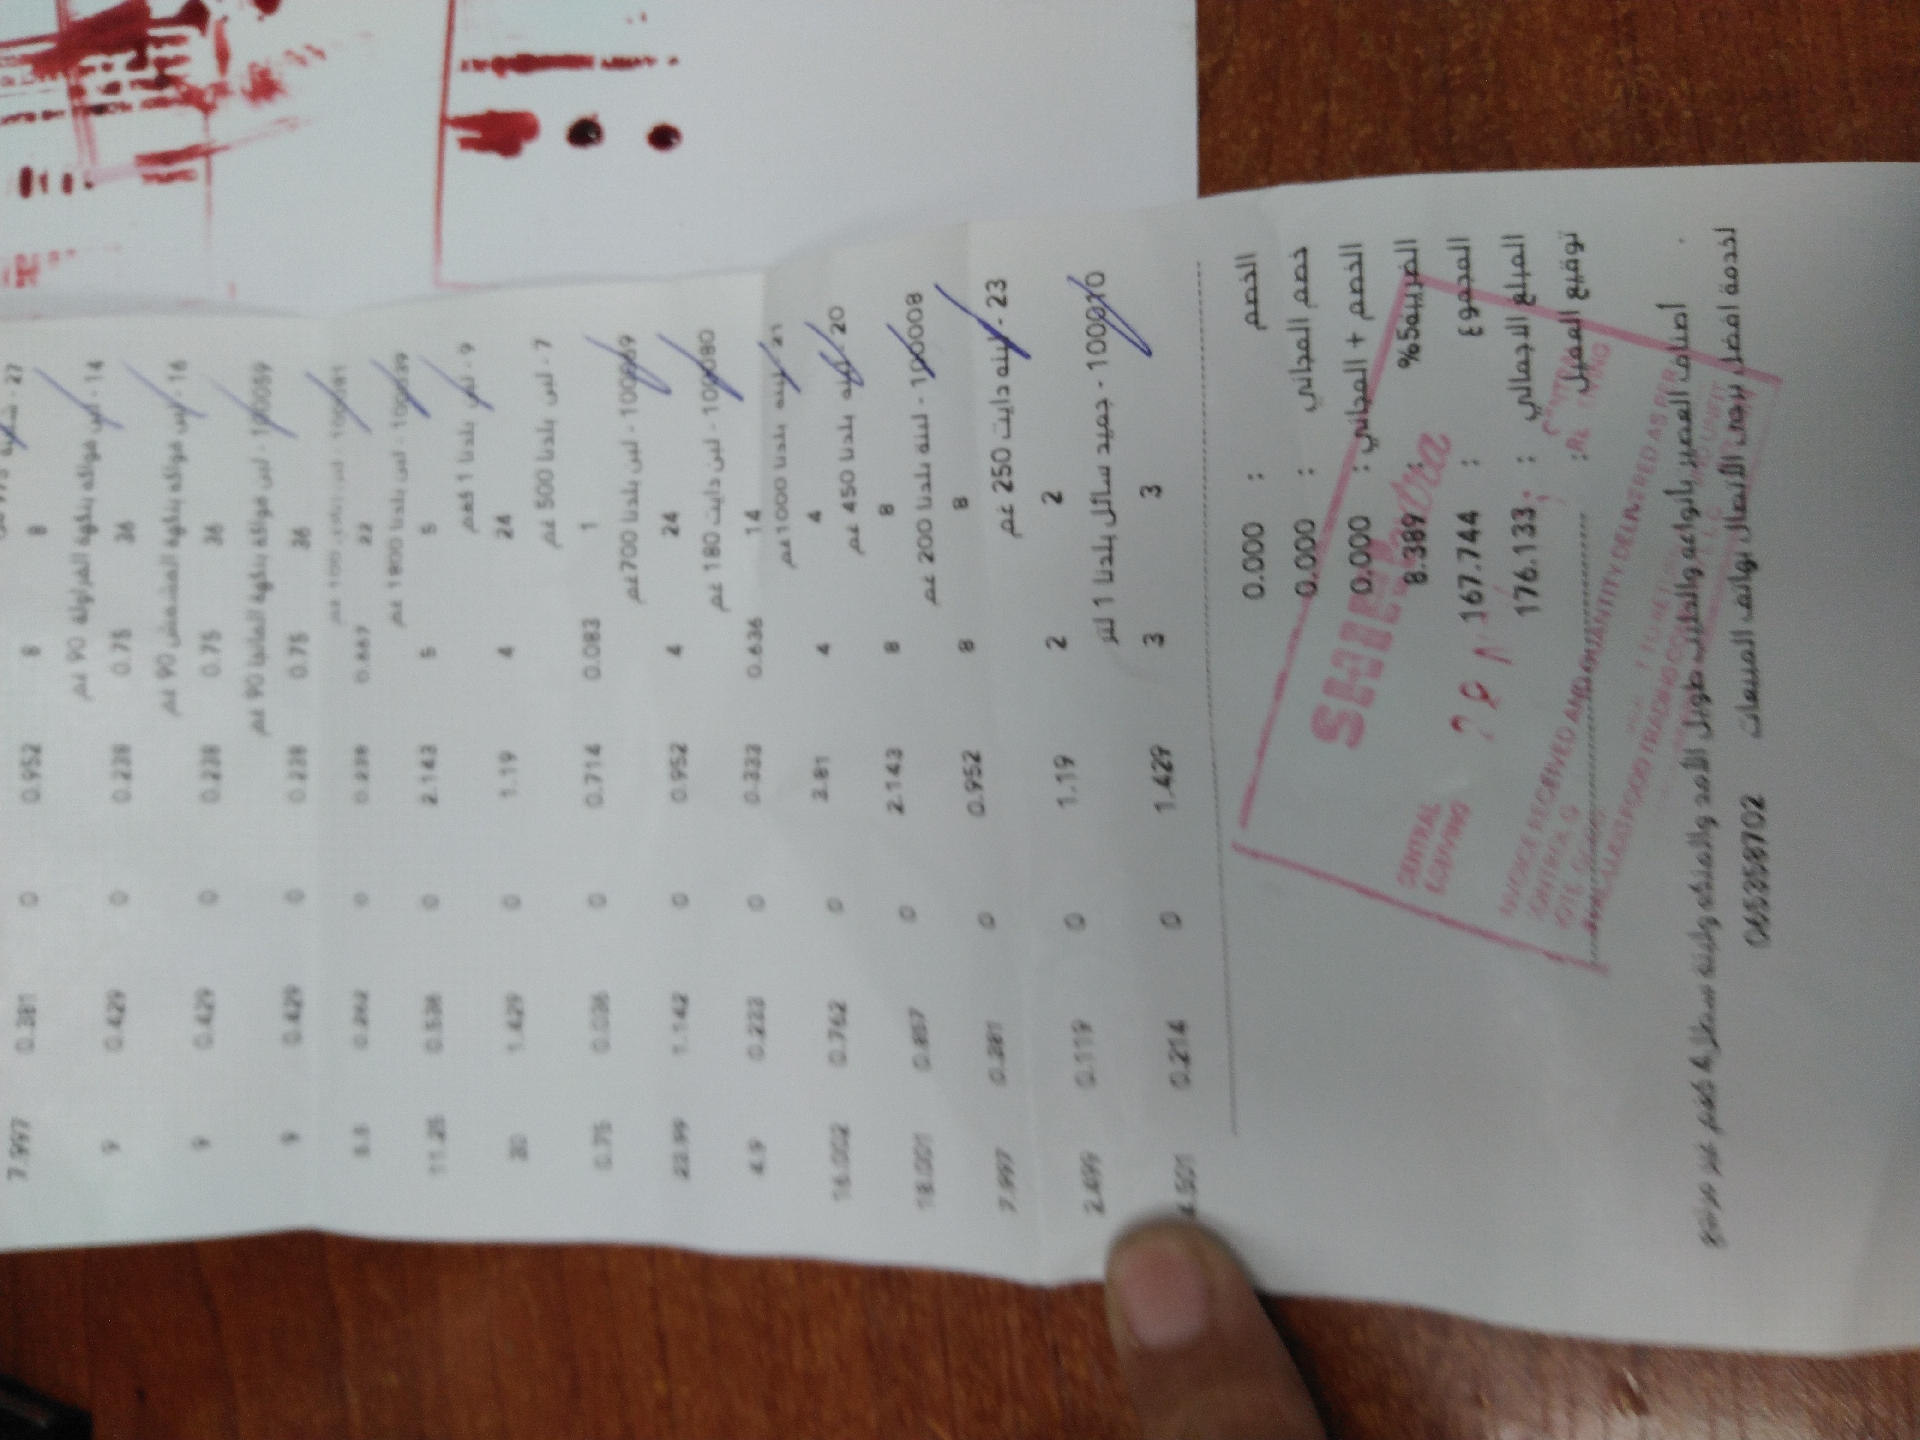 27 -
8 8 0.952 0 0.381 7.997
14 - لبن فواكه بنكهة الفراولة 90 غم
36 0.75 0.238 0 0.429 9
16 - لبن فواكه بنكهة المشمش 90 غم
36 0.75 0.238 0 0.429 9
100059 - لبن فواكه بنكهة المانجا 90 غم
36 0.75 0.238 0 0.429 9
22 0.667 0.238 0 0.262 5.5
لبن بلدنا 1800 غم
5 5 2.143 0 0.536 11.25
9 - لبن بلدنا 1 كغم
24 4 1.19 0 1.429 30
7 - لبن بلدنا 500 غم
1 0.083 0.714 0 0.036 0.75
لبن بلدنا 700 غم
24 4 0.952 0 1.142 23.99
100080 - لبن دايت 180 غم
14 0.636 0.333 0 0.233 4.9
21 - لبنه بلدنا 1000 غم
4 4 3.81 0 0.762 16.002
20 - لبنه بلدنا 450 غم
8 8 2.143 0 0.857 18.001
100008 - لبنه بلدنا 200 غم
8 8 0.952 0 0.381 7.997
23 - لبنه دايت 250 غم
2 2 1.19 0 0.119 2.499
100010 - جميد سائل بلدنا 1 لتر
3 3 1.429 0 0.214 4.501
الخصم : 0.000
خصم المجاني : 0.000
الخصم + المجاني : 0.000
الضريبه5% : 8.389
المجموع : 167.744
المبلغ الاجمالي : 176.133
توقيع العميل :
CENTRAL
INVOICE RECEIVED AND QUANTITY DELIVERED AS PER
FOOD TRADING
أصناف العصير بأنواعه والحليب طويل الأمد والمنكه ولبنه سطل 4 كغم غير مرتجع
.
لخدمة افضل يرجى الأتصال بهاتف المبيعات 065358702